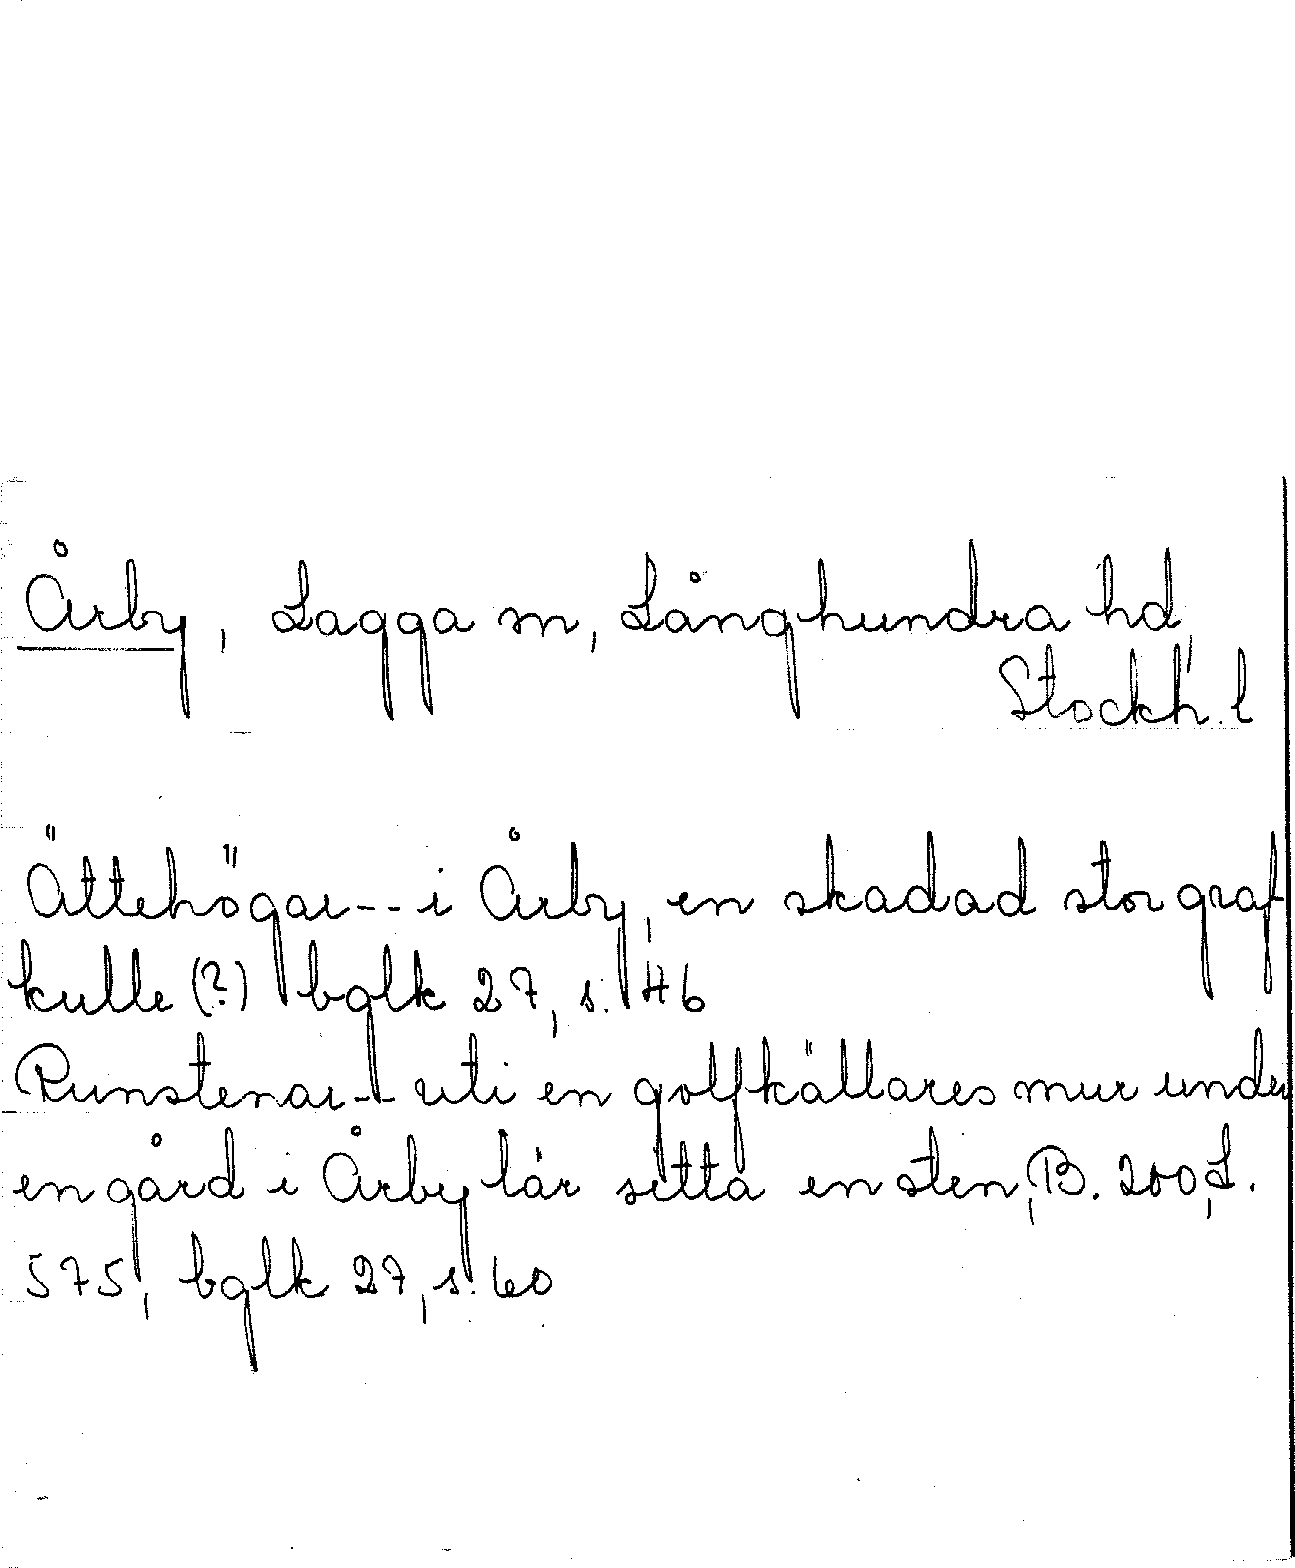 Årby, Lagga sn, Långhundra hd,
Stockh. l
Ättehögar-- i Årby, en skadad stor graf
kulle (?) bglk 27, s. 46
Runstenar-- uti en golfkällares mur under
en gård i Årby lär sitta en sten, B. 200, L.
575, bglk 27, s. 60